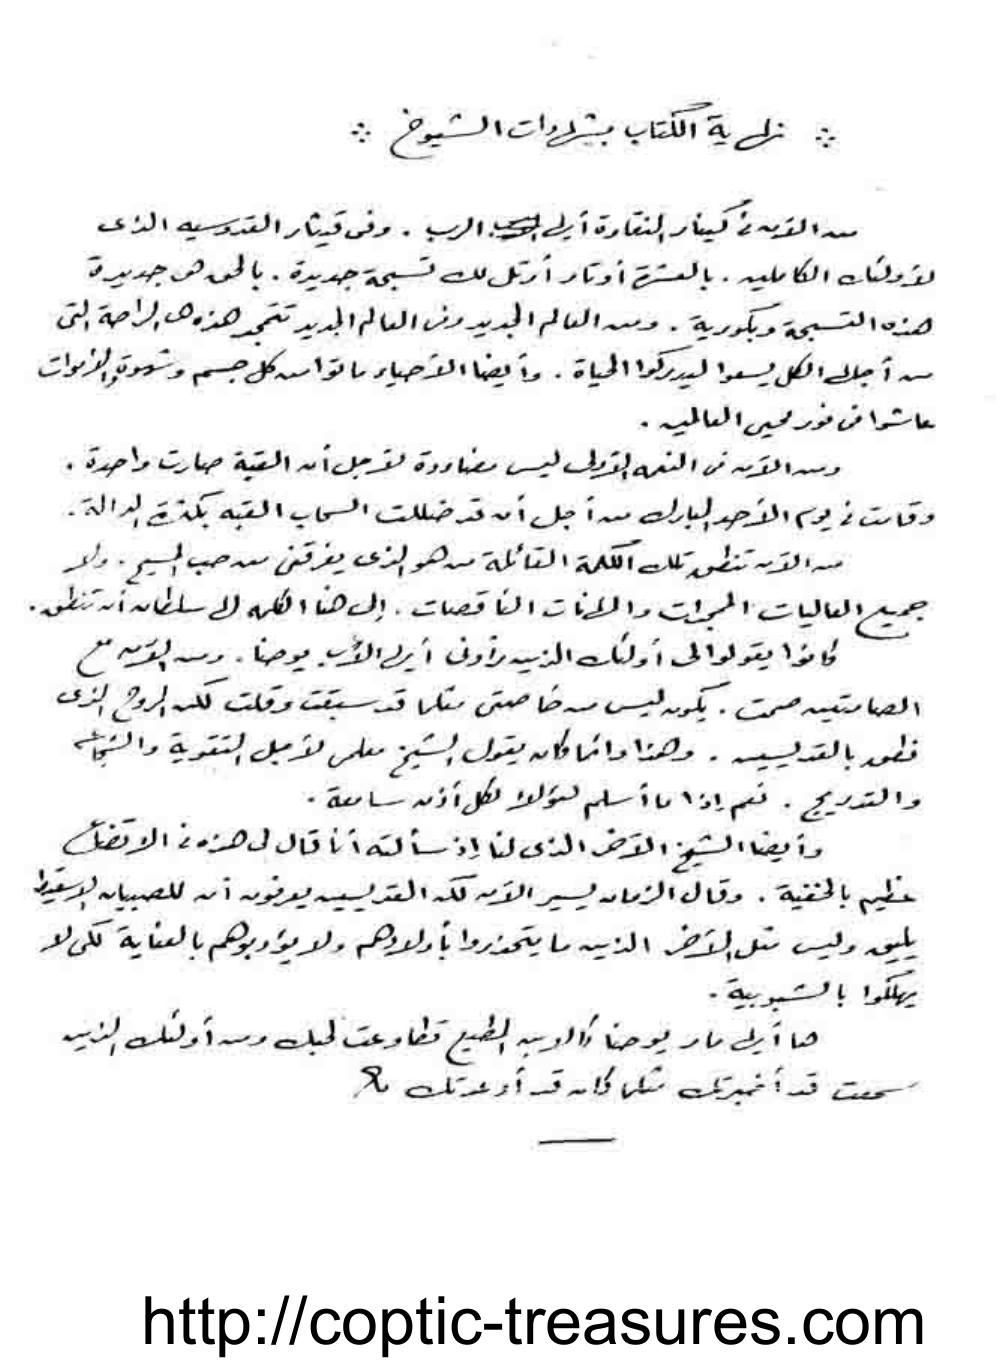 نهاية الكتاب بشهادات الشيوخ
من الآن في كينار النقاوة أيها الرب . وفى قيثار القدوسيه الذى
لأولئك الكاملين . بالعشرة أوتار أرتل لك تسبحة جديدة . بالحق هى جديدة
هذه التسبحة وبكورية . ومن العالم الجديد وفى العالم الجديد تتمجد هذه هى الراحة التى
من أجلها الكل يسعوا ليدركوا الحياة . وأيضا الأحياء ماتوا من كل جسم وشهوة والأموات
عاشوا فى نور محيى العالمين .
ومن الآن فى النعمه الأولى ليس مضاددة لأجل أن القبة صارت واحدة .
وقامت في يوم الأحد المبارك من أجل أن قد ضللت السحاب القبه بكثرة الدالة .
من الآن تنطق تلك الكلمة القائلة من هو الذى يفرقنى من حب المسيح . ولا
جميع العاليات المجدات والهائنات الناقصات . إلى هنا الكلمه لها سلطان أن تنطق .
كانوا يقولوا لى أولئك الذين رأونى أيها الأب يوحنا . ومن الآن مع
الصامتين صمت . يكون ليس من خاصتى مثلما قد سبقت وقلت لكن الروح الذى
نطق بالقديسين . وهذا دائما كان يقول الشيخ معلمى لأجل التقوية والشجاعه
والتدريج . نعم إذا ما أسلم لهؤلاء لكل أذن سامعة .
وأيضا الشيخ الآخر الذى لنا إذ سألته أنا قال لى هذه في الاتضاع
عظيم بالحقيقة . وقال الزمان يسير الآن لكن القديسين يعرفون أن للصبيان الاسقيط
يليق وليس مثل الآخر الذين ما يتحذروا بأولادهم ولا يؤدبوهم بالعناية لكى لا
يهلكوا بالشبوبية .
ها أيها مار يوحنا كالابن المطيع قطاوعت لحبك ومن أولئك الذين
سمعت قد أخبرتك مثلما كان قد أوعدتك
http://coptic-treasures.com